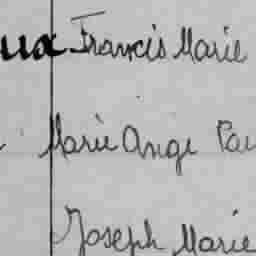 ux Francis Marie
Marie Ange
Joseph Marie